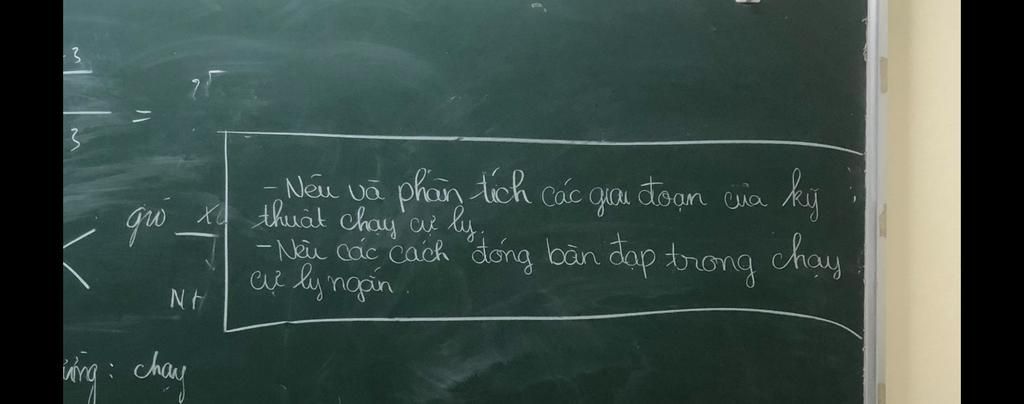 3
3
=
?√
- Nêu và phân tích các giai đoạn của kỹ
thuật chạy cự ly.
- Nêu các cách đóng bàn đạp trong chạy
cự ly ngắn.
gió x
ưỡng: chạy